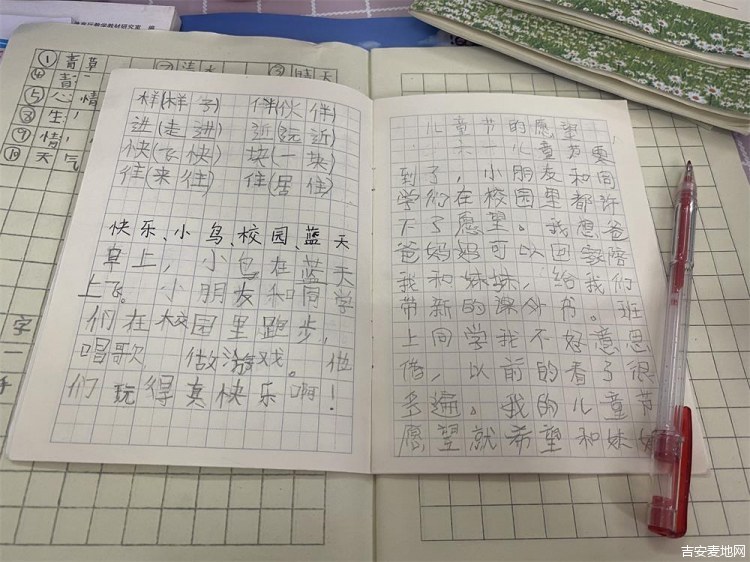 ① 青草
④ 青
⑤ 心情
⑧ 生
⑨ 情
⑩ 天气
③ 晴天
样(样子) 伴(伙伴)
进(走进) 近(远近)
快(飞快) 块(一块)
往(来往) 住(居住)
快乐、小鸟、校园、蓝天
早上，小鸟在蓝天
上飞。小朋友和同学
们在校园里跑步，
唱歌 做游戏。他
们玩得真快乐啊！
字
一
儿童节的愿望
六一儿童节要
到了，小朋友和同
学们在校园里都许
下了愿望。我想爸
爸妈妈可以回家陪
我和妹妹，给我们
带新的课外书。班
上同学我不好意思
借，以前的看了很
多遍。我的儿童节
愿望就希望和妹妹
吉安麦地网